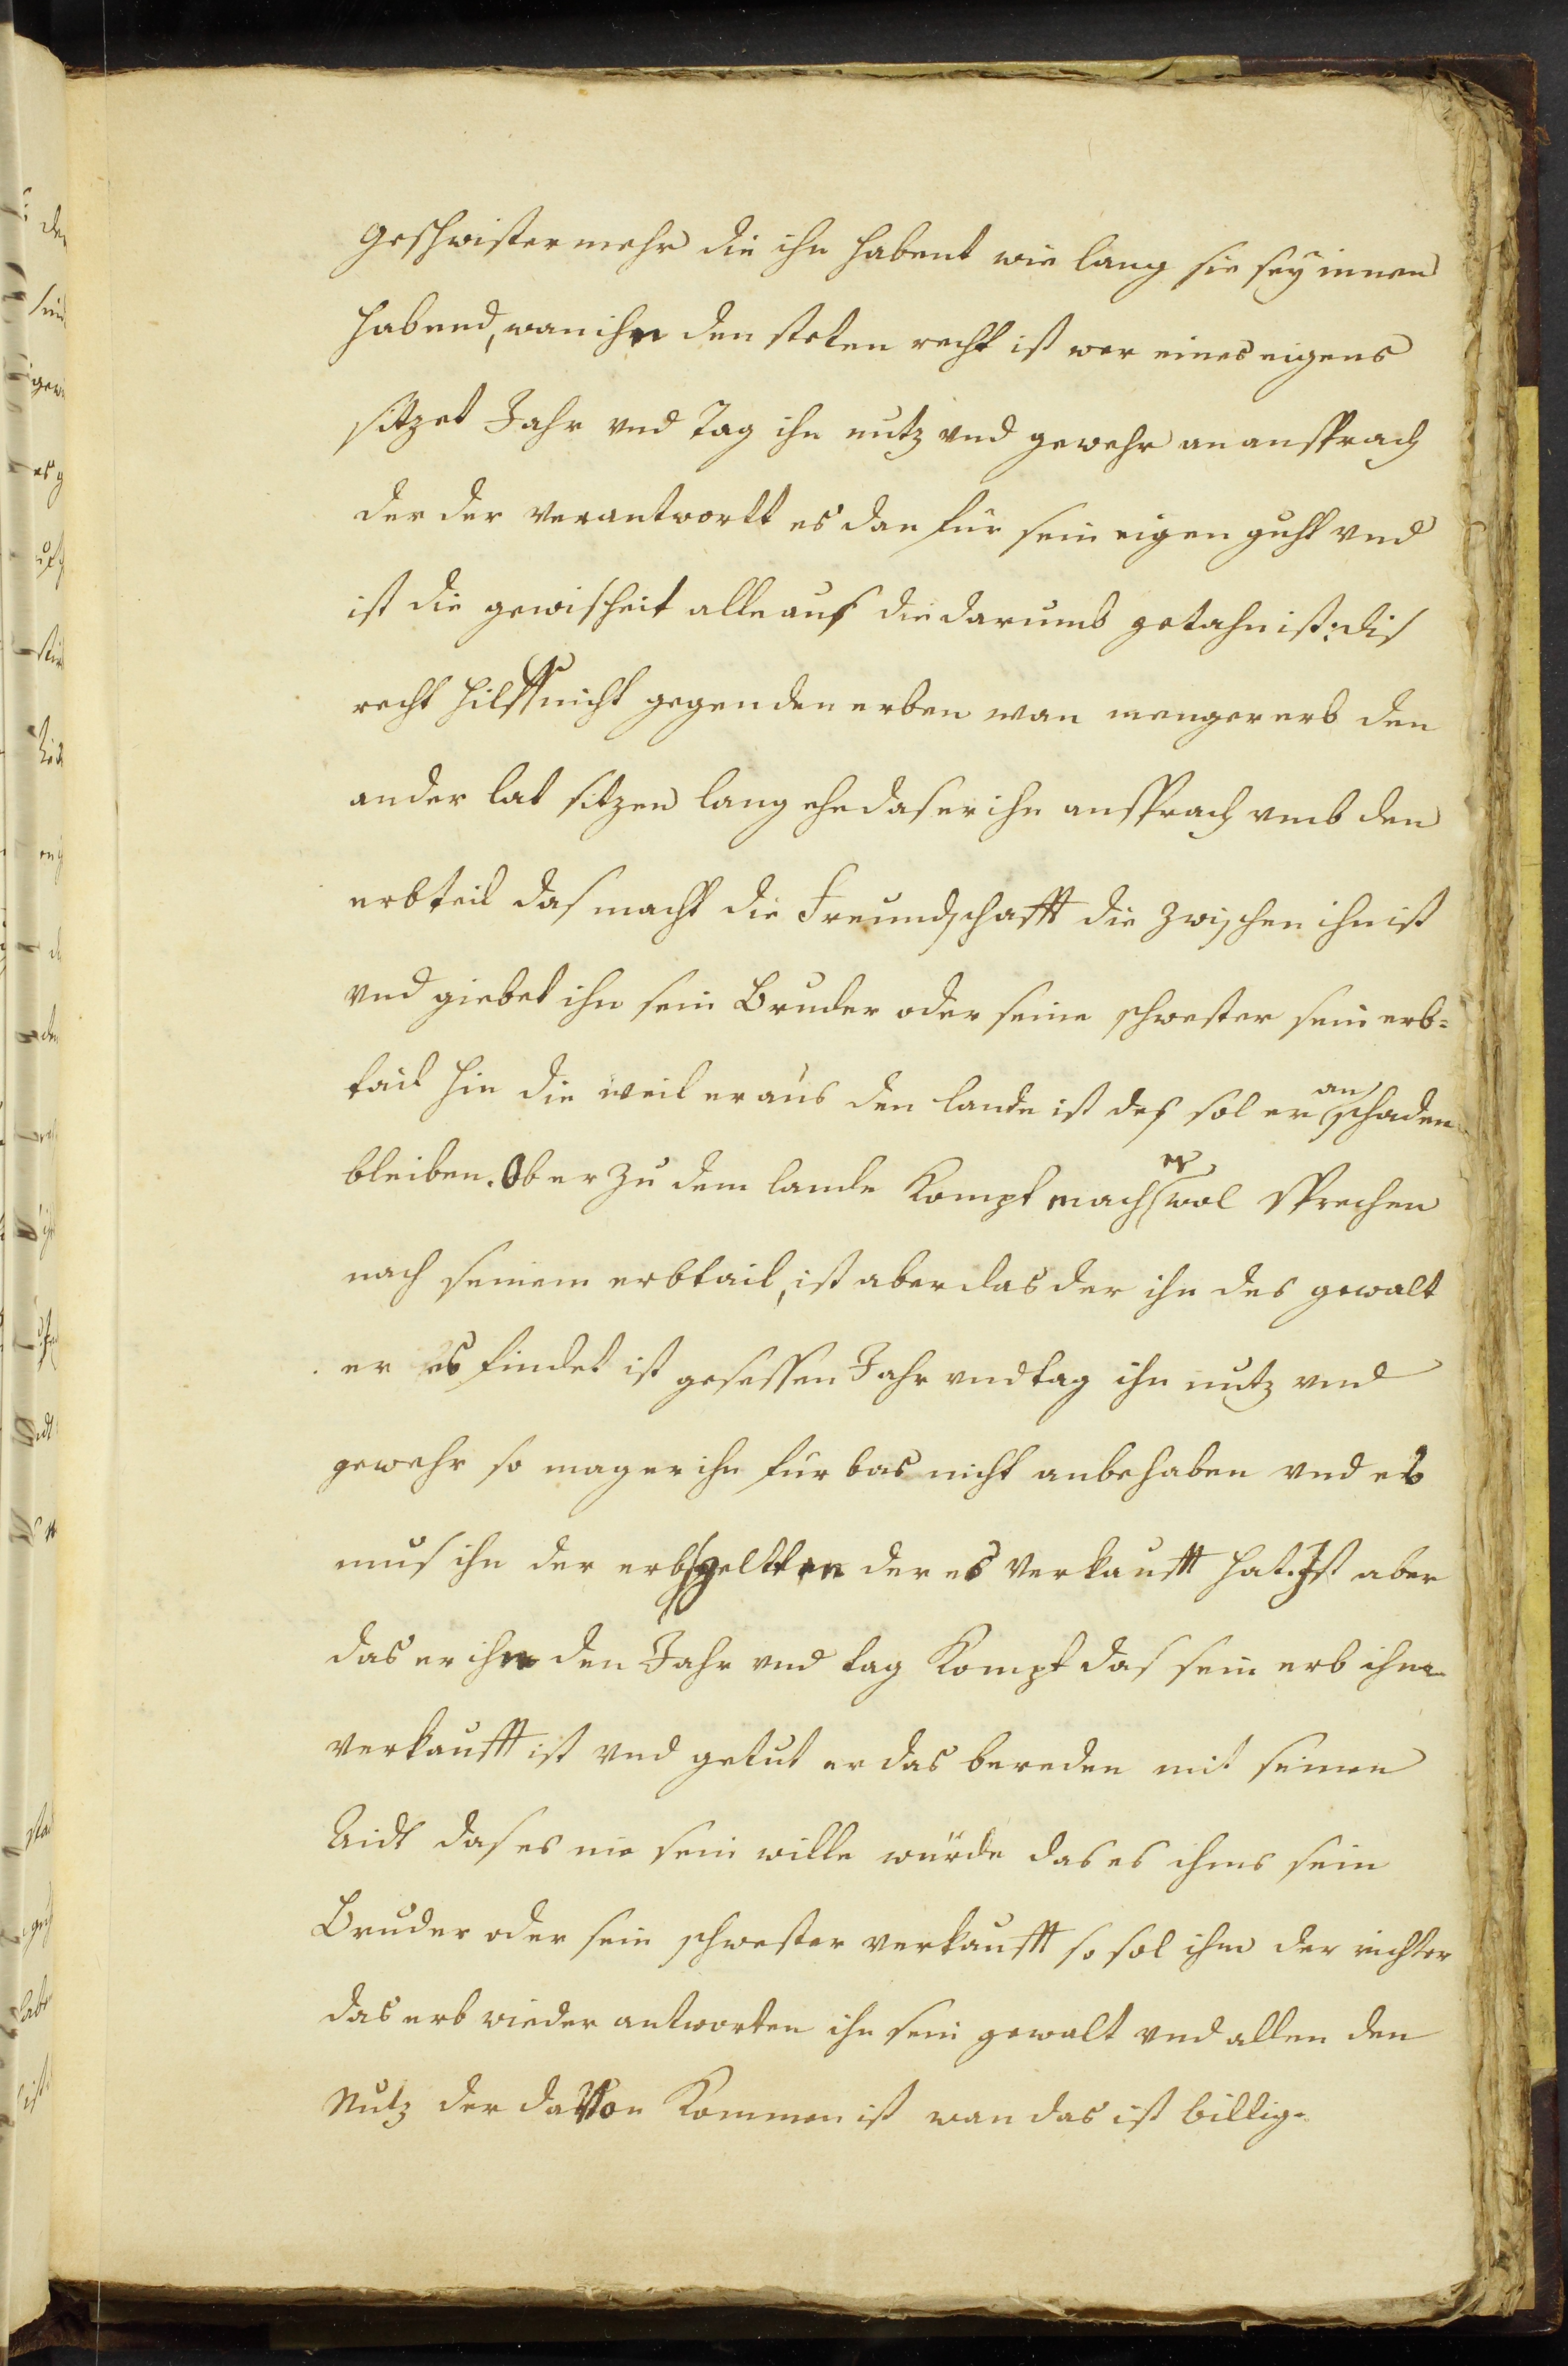 geschwister mehr die ihn habent wie lang sie sey innen
habend, wan ihn den steten recht ist wer eines eigens
sitzet Jahr vnd Tag ihn nutz vnd gewehr an ansprach
der der verantwortt es dan für sein eigen guht vnd
ist die gewisheit alle aus die darumb getahn ist: dis
recht hilfft nicht gegen den erben wan menger erb den
ander lat sitzen lang ehe das er ihn ansprach vmb den
erbteil das macht die Freundschafft die zwischen ihn ist
vnd giebet ihn sein Bruder oder seine schwester sein erb=
tail hin die weil er aus den lande ist des sol er an schaden
bleiben. Ob er zu dem lande Kompt mach er wol sprechen
nach seinem erbtail, ist aber das der ihn des gewalt
er es findet ist gesessen Jahr vnd tag ihn nutz vnd
gewehr so mag er ihn für bas nicht anbehaben vnd es
mus ihn der erb geltten der es verkaufft hat. Ist aber
das er ihn den Jahr vnd tag Kompt das sein erb ihme
verkaufft ist vnd getut er das bereden mit seinen
Aidt das es nie sein wille würde das es ihms sein
Bruder oder sein schwester verkaufft so sol ihm der richter
das erb wieder antworten ihn sein gewalt vnd allen den
Nutz der davon Kommen ist wan das ist billig.